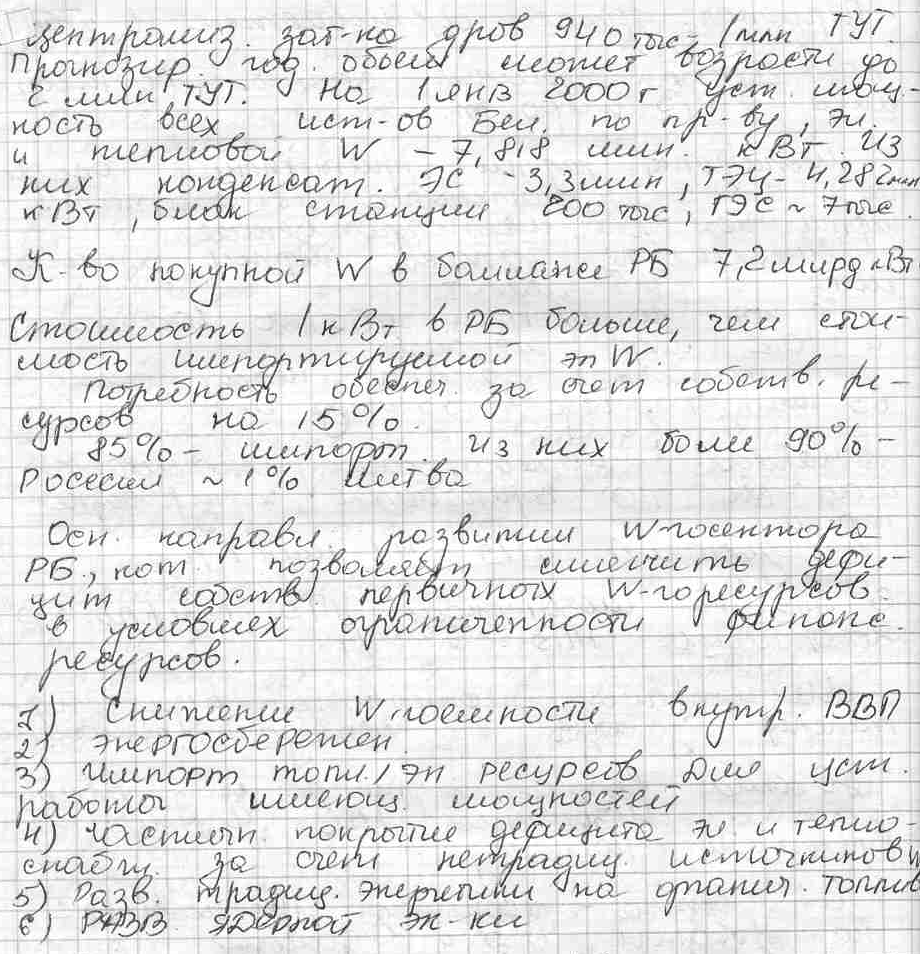 централиз. заг-ка дров 940 тыс - 1 млн ТУТ.
Прогнозир. год. объем может возрасти до
2 млн ТУТ. На 1 янв 2000 г уст. мощ-
ность всех ист-ов Бел. по пр-ву, эл.
и тепловой W - 7,818 млн. кВт. Из
них конденсат. ЭС - 3,3 млн, ТЭЦ - 4,282 млн
кВт, блок станции 200 тыс, ГЭС ~ 7 тыс.
К-во покупной W в балансе РБ 7,2 млрд кВт
Стоимость 1 кВт в РБ больше, чем стои-
мость импортируемой эл W.
Потребность обеспеч. за счет собств. ре-
сурсов на 15%.
85% - импорт. Из них более 90% -
Россия ~ 1% Литва
Осн. направл. развития W-госектора
РБ, кот. позволяет смягчить дефи-
цит собств. первичных W-горесурсов.
в условиях ограниченности финанс.
ресурсов.
1) Снижение W-гоемкости внутр. ВВП
2) Энергосбережен.
3) Импорт топл./эл ресурсов для уст.
работы имеющ. мощностей
4) Частичн. покрытие дефицита эл. и тепло-
снабж. за счет нетрадиц. источников W
5) Разв. традиц. энергетики на органич. топлив
6) РАЗВ ЯДЕРНОЙ ЭН-КИ